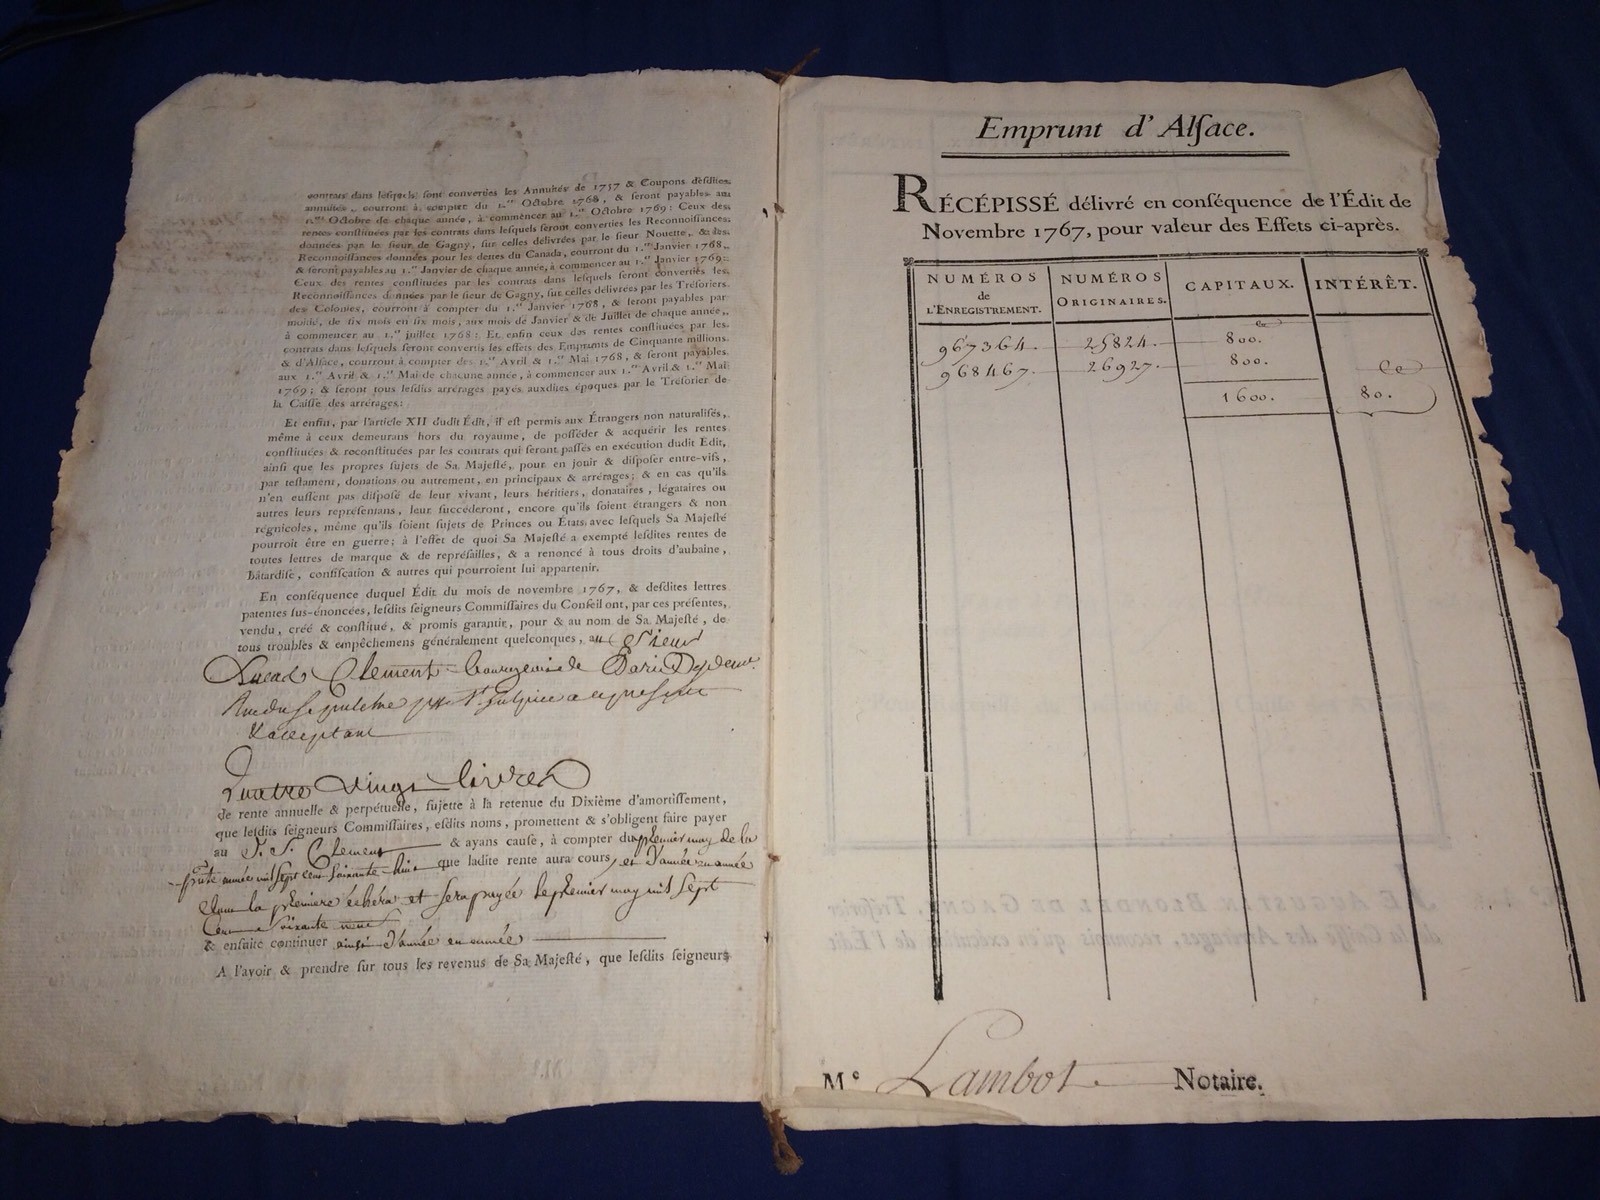 contrats dans lesquels sont converties les Annuités de 1757 & Coupons desdites
annuités, courront à compter du 1.er Octobre 1768, & seront payables au
1.er Octobre de chaque année, à commencer au 1.er Octobre 1769: Ceux des
rentes constituées par les contrats dans lesquels seront converties les Reconnoissances
données par le sieur de Gagny, sur celles délivrées par le sieur Nouette, & des
Reconnoissances données pour les dettes du Canada, courront du 1.er Janvier 1768,
& seront payables au 1.er Janvier de chaque année, à commencer au 1.er Janvier 1769:
Ceux des rentes constituées par les contrats dans lesquels seront converties les
Reconnoissances données par le sieur de Gagny, sur celles délivrées par les Trésoriers
des Colonies, courront à compter du 1.er Janvier 1768, & seront payables par
moitié, de six mois en six mois, aux mois de Janvier & de Juillet de chaque année,
à commencer au 1.er juillet 1768: Et enfin ceux des rentes constituées par les
contrats dans lesquels seront convertis les effets des Emprunts de Cinquante millions
& d'Alsace, courront à compter des 1.er Avril & 1.er Mai 1768, & seront payables
aux 1.er Avril & 1.er Mai de chacune année, à commencer aux 1.er Avril & 1.er Mai
1769; & seront tous lesdits arrérages payés auxdites époques par le Trésorier de
la Caisse des arrérages:
Et enfin, par l'article XII dudit Édit, il est permis aux Étrangers non naturalisés,
même à ceux demeurans hors du royaume, de posséder & acquérir les rentes
constituées & reconstituées par les contrats qui seront passés en exécution dudit Edit,
ainsi que les propres sujets de Sa Majesté, pour en jouir & disposer entre-vifs,
par testament, donations ou autrement, en principaux & arrérages; & en cas qu'ils
n'en eussent pas disposé de leur vivant, leurs héritiers, donataires, légataires ou
autres leurs représentans, leur succéderont, encore qu'ils soient étrangers & non
régnicoles, même qu'ils soient sujets de Princes ou États avec lesquels Sa Majesté
pourroit être en guerre; à l'effet de quoi Sa Majesté a exempté lesdites rentes de
toutes lettres de marque & de représailles, & a renoncé à tous droits d'aubaine,
bâtardise, confiscation & autres qui pourroient lui appartenir.
En conséquence duquel Édit du mois de novembre 1767, & desdites lettres
patentes sus-énoncées, lesdits seigneurs Commissaires du Conseil ont, par ces présentes,
vendu, créé & constitué, & promis garantir, pour & au nom de Sa Majesté, de
tous troubles & empêchemens généralement quelconques, au Sieur
Clement bourgeois de Paris Dem.t
Rue du Sepulchre psse St. Sulpice a ce present
& acceptant
Quatre Vingt livres
de rente annuelle & perpétuelle, sujette à la retenue du Dixième d'amortissement,
que lesdits seigneurs Commissaires, esdits noms, promettent & s'obligent faire payer
au S. S. Clement & ayans cause, à compter du premier may de la
pnte année mil Sept cent Soixante huit que ladite rente aura cours, et d'année en année
dont la premiere échera et sera payée le premier may mil sept
Cent Soixante neuf
& ensuite continuer ainsi d'année en année
A l'avoir & prendre sur tous les revenus de Sa Majesté, que lesdits seigneurs
Emprunt d'Alsace.
RÉCÉPISSÉ délivré en conséquence de l'Édit de
Novembre 1767, pour valeur des Effets ci-après.
NUMÉROS de l'ENREGISTREMENT. NUMÉROS ORIGINAIRES. CAPITAUX. INTÉRÊT.
967364. 25824. 800.
968467. 26927. 800.
1600. 80.
Me Lambot Notaire.